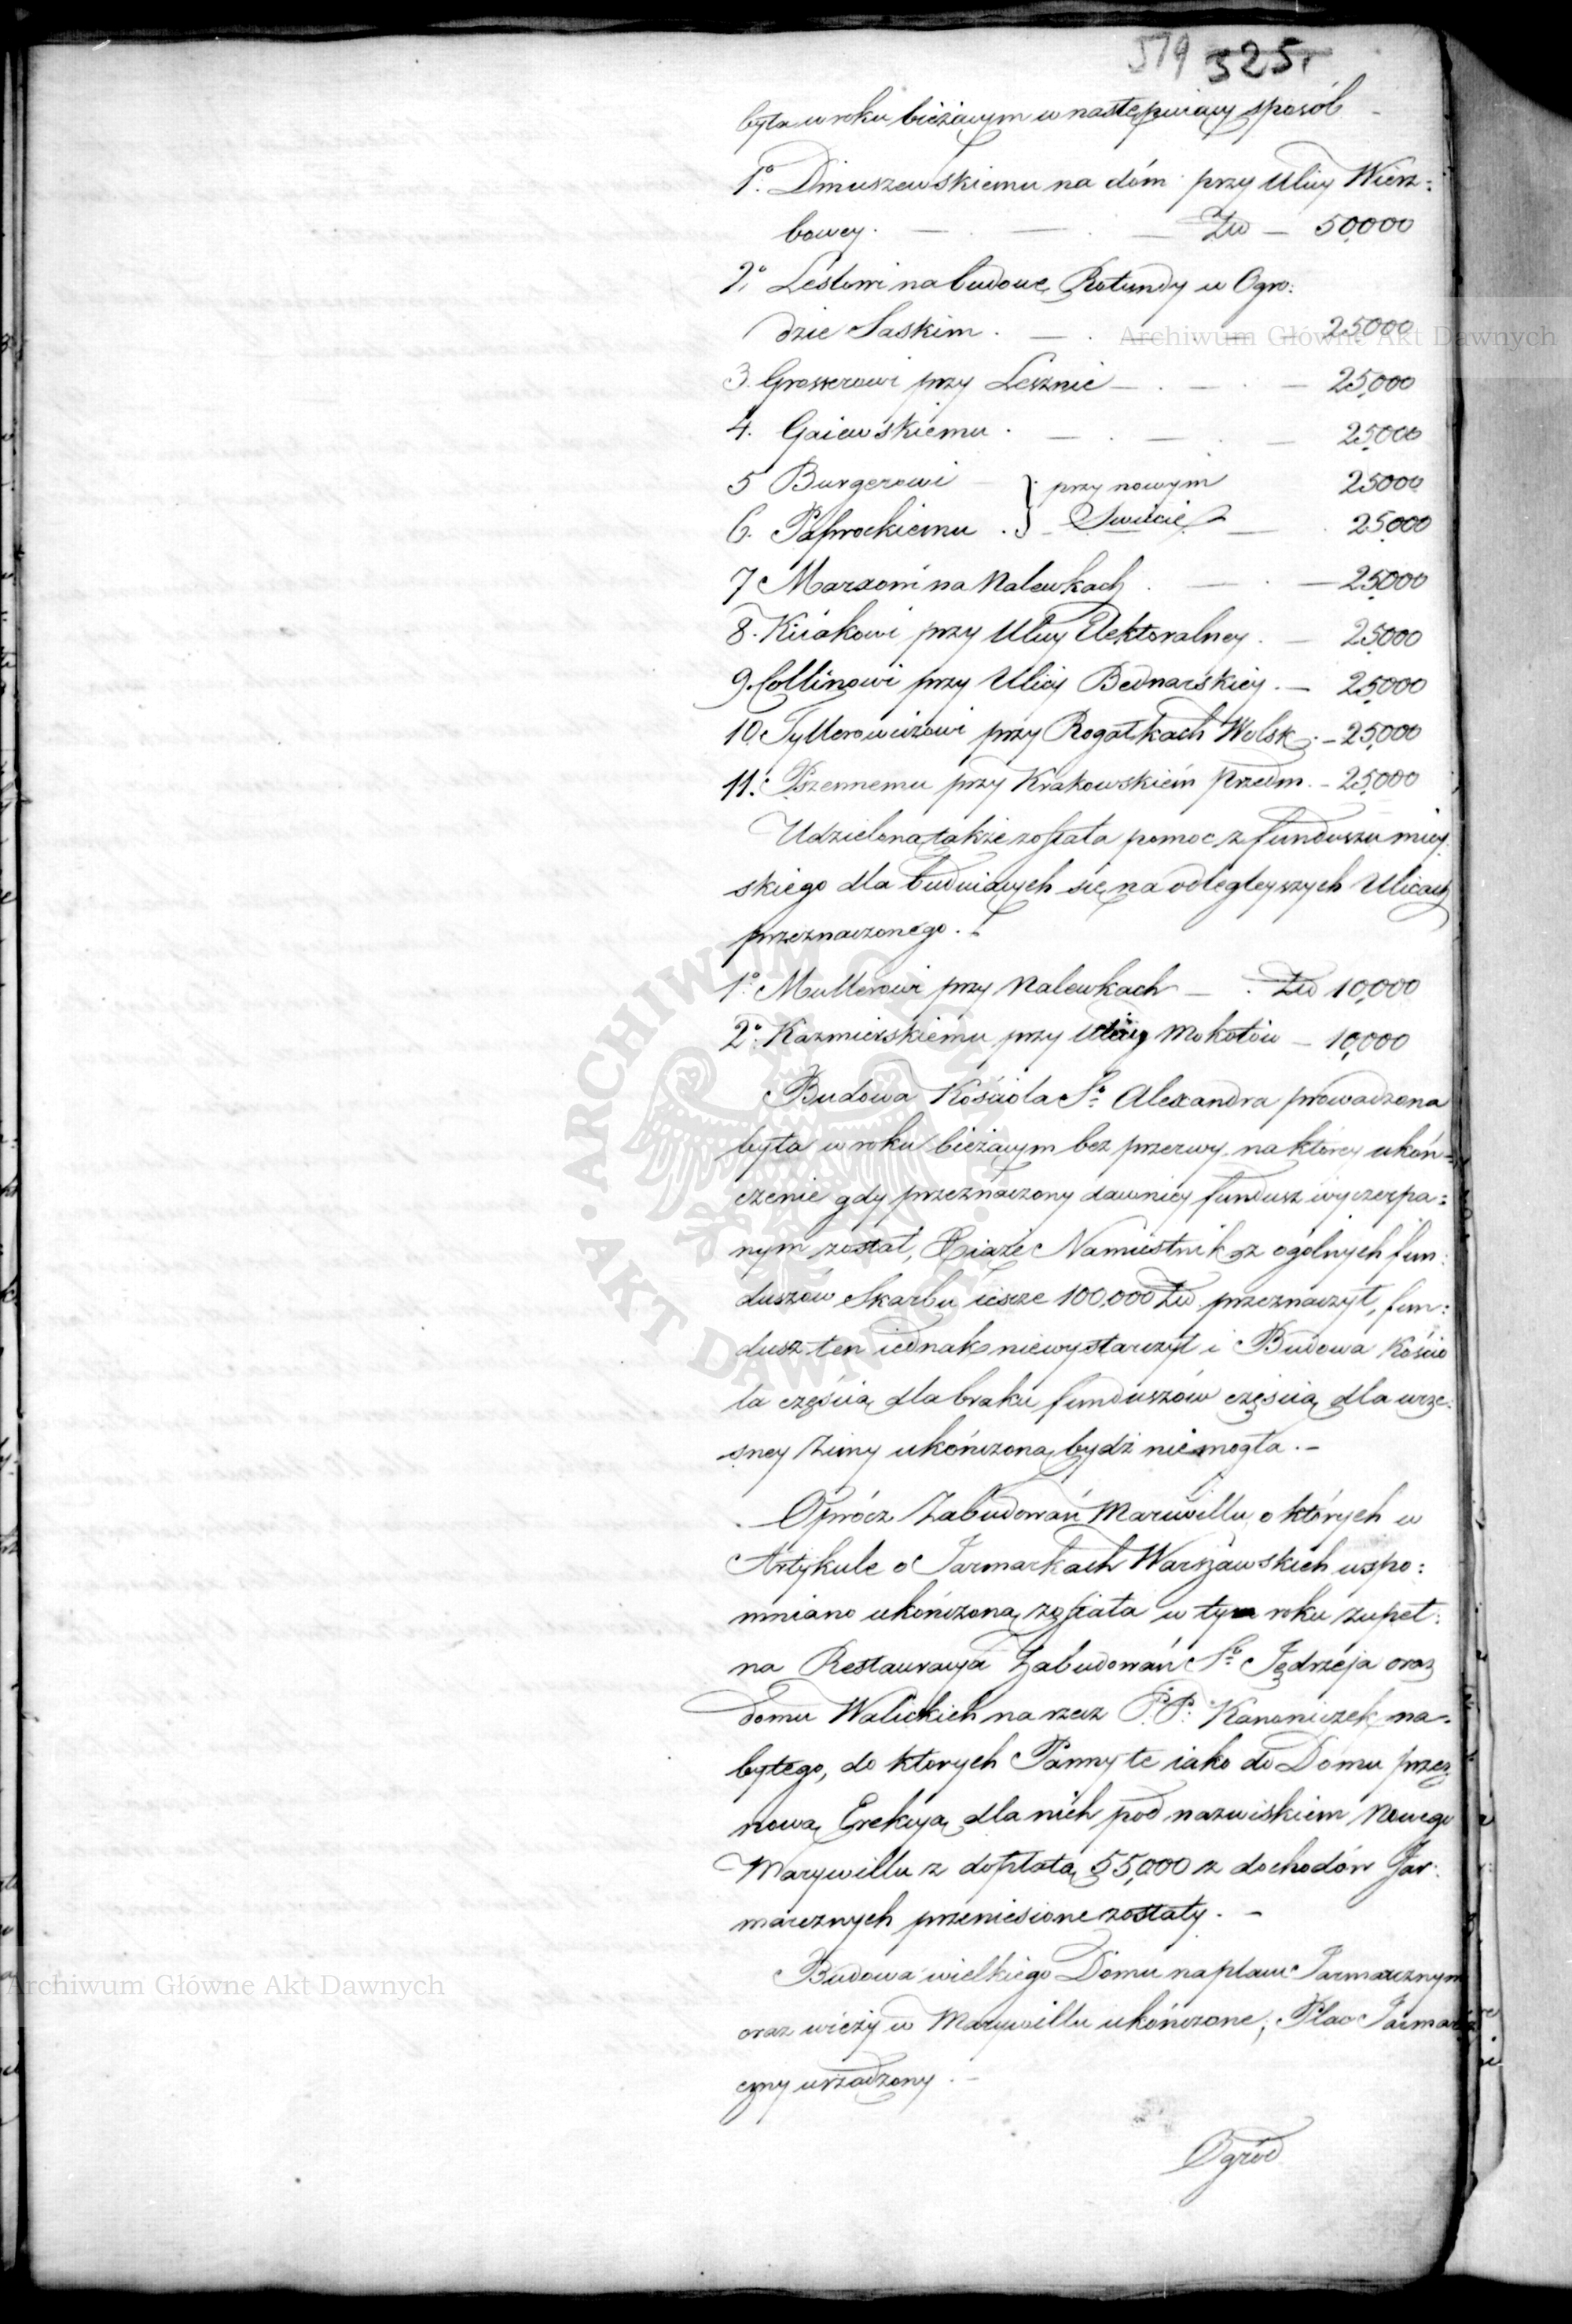 519 325r
była w roku bieżącym w następuiący sposób
1º. Dmuszewskiemu na dóm przy Ulicy Wierz:
bowey. — . — . — Złp — 50,000
2º. Lesłowi na budowę Rotundy w Ogro:
dzie Saskim. — . — . — 25,000
3. Grosserowi przy Lesznie — . — . — 25,000
4. Gaiewskiemu . — . — . — 25,000
5 Burgerowi — } przy nowym 25000
6. Paprockiemu . } Swiecie — . 25,000
7 Marxowi na Nalewkach . — . — 25,000
8. Kurakowi przy Ulicy Elektoralney. — 25,000
9. Collinowi przy Ulicy Bednarskiey. — 25,000
10. Tyllerowiczowi przy Rogatkach Wolsk. — 25,000
11. Pszennemu przy Krakowskiém Przedm. — 25,000
Udzielona także została pomoc z funduszu miey
skiego dla buduiących się na odlegleyszych Ulicach
przeznaczonego. —
1º. Mullerowi przy Nalewkach — . Złp 10,000
2º. Kazmierskiemu przy Ulicy Mokotow — 10,000
Budowa Kościoła Sº. Alexandra prowadzona
była w roku bieżącym bez przerwy na którey ukoń=
czenie gdy przeznaczony dawniey fundusz wyczerpa=
nym został, Xiąże Namiestnik z ogólnych fun:
duszów Skarbu iescze 100,000 Złp przeznaczył, fun:
dusz ten iednak niewystarczył i Budowa Kościo
ła częścią dla braku funduszów częścią dla wcze:
sney Zimy ukończoną bydź nie mogła. —
Oprócz Zabudowań Marievillu o których w
Artykule o Jarmarkach Warszawskich wspo:
mniano ukończoną została w tym roku zupeł:
na Restauracya Zabudowań Sº. Jędrzeja oraz
domu Walickich na rzecz P.P. Kanoniczek na=
bytego, do ktorych Panny te iako do Domu przez
nową Erekcyą dla nich pod nazwiskiem Nowego
Marywillu z dopłatą 55,000 z dochodów Jar:
marcznych przeniesione zostały. —
Budowa wielkiego Domu na placu Jarmarcznym
oraz wieży w Marywillu ukończone, Plac Jarmar
czny urządzony. —
Ogród
Archiwum Główne Akt Dawnych
Archiwum Główne Akt Dawnych